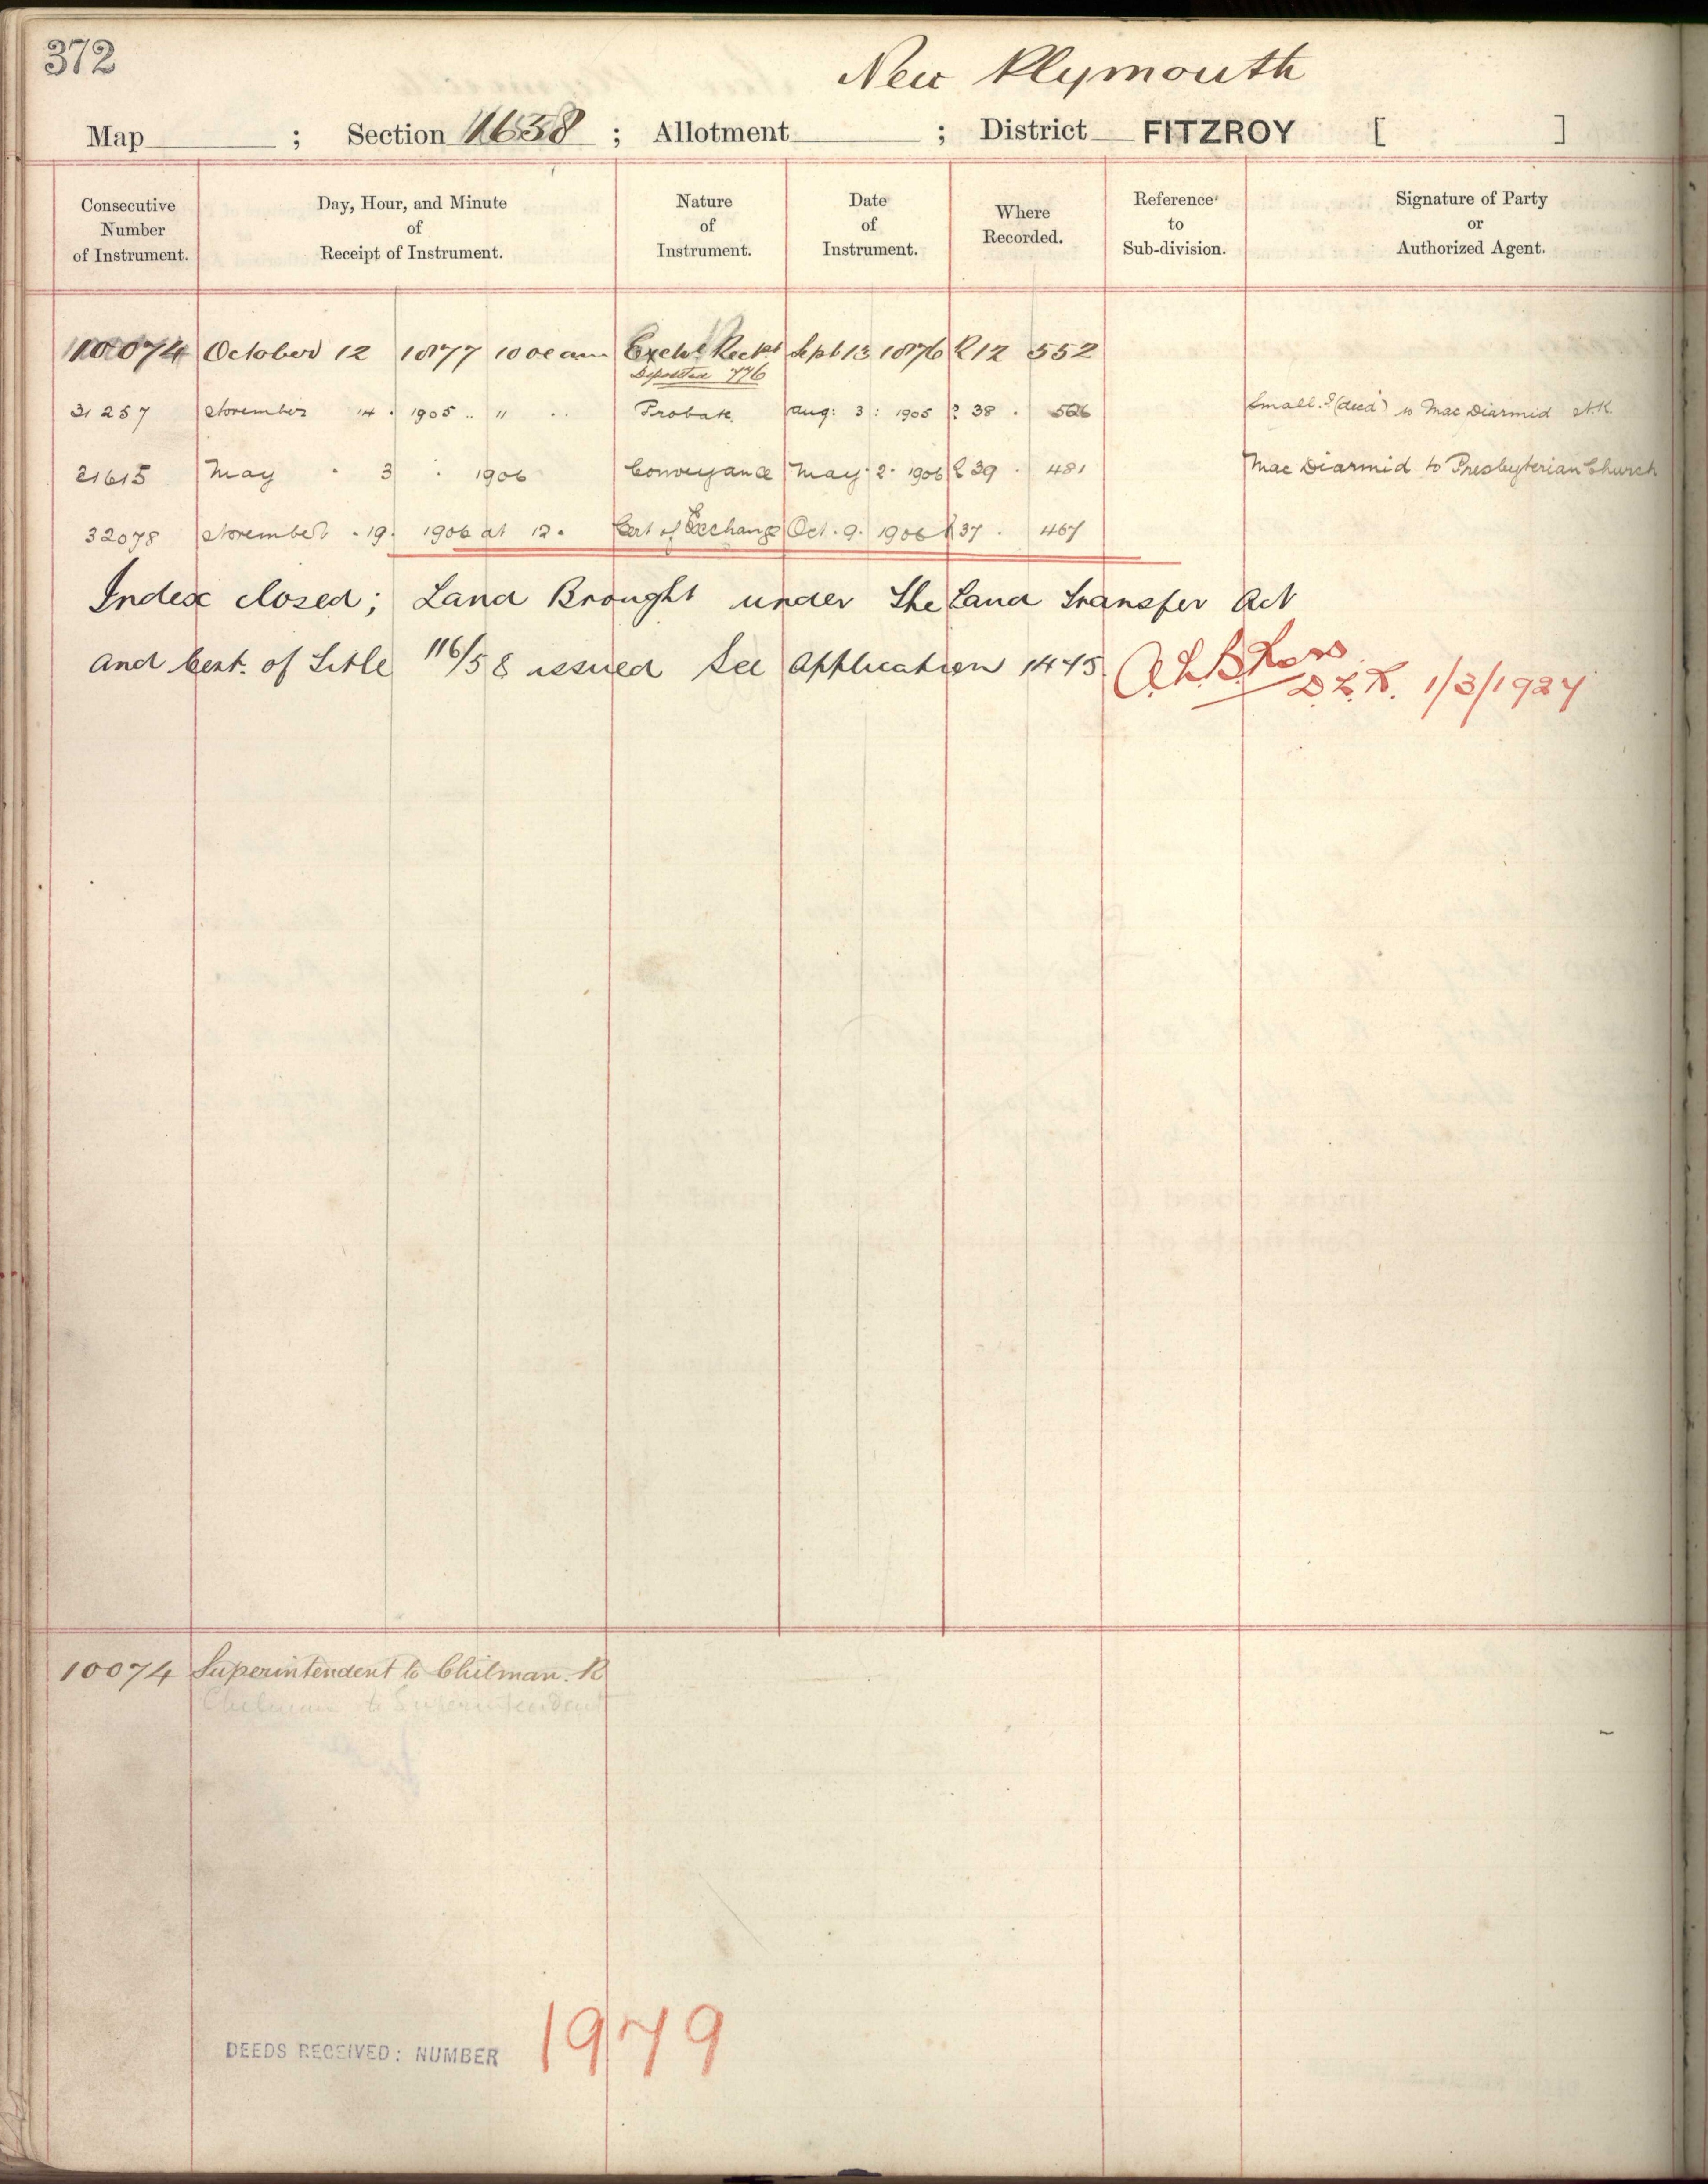 372
New Plymouth
Map ; Section 1658 ; Allotment ; District FITZROY [ ]
Consecutive Number of Instrument. Day, Hour, and Minute of Receipt of Instrument. Nature of Instrument. Date of Instrument. Where Recorded. Reference to Sub-division. Signature of Party or Authorized Agent.
10074 October 12 1877 10 am Sept 13 1876 R12 552
Deposited 776
31257 November 14 . 1905 .. 11 .. Probate. Aug: 3 : 1905 38 . 526 Small (decd) to MacDiarmid
21615 May " 3 . 1906 Conveyance May 2. 1906 39 . 481 MacDiarmid to Presbyterian Church
32078 November . 19. 1906 at 12. Cert of Exchange Oct. 9. 1906 37 . 467
Index closed; Land Brought under the Land Transfer Act
and Cert. of Title 116/58 issued See Application 1475. D.L.R. 1/3/1927
10074 Superintendent to Chilman. R
Chilman to Superintendent
DEEDS RECEIVED: NUMBER 1979